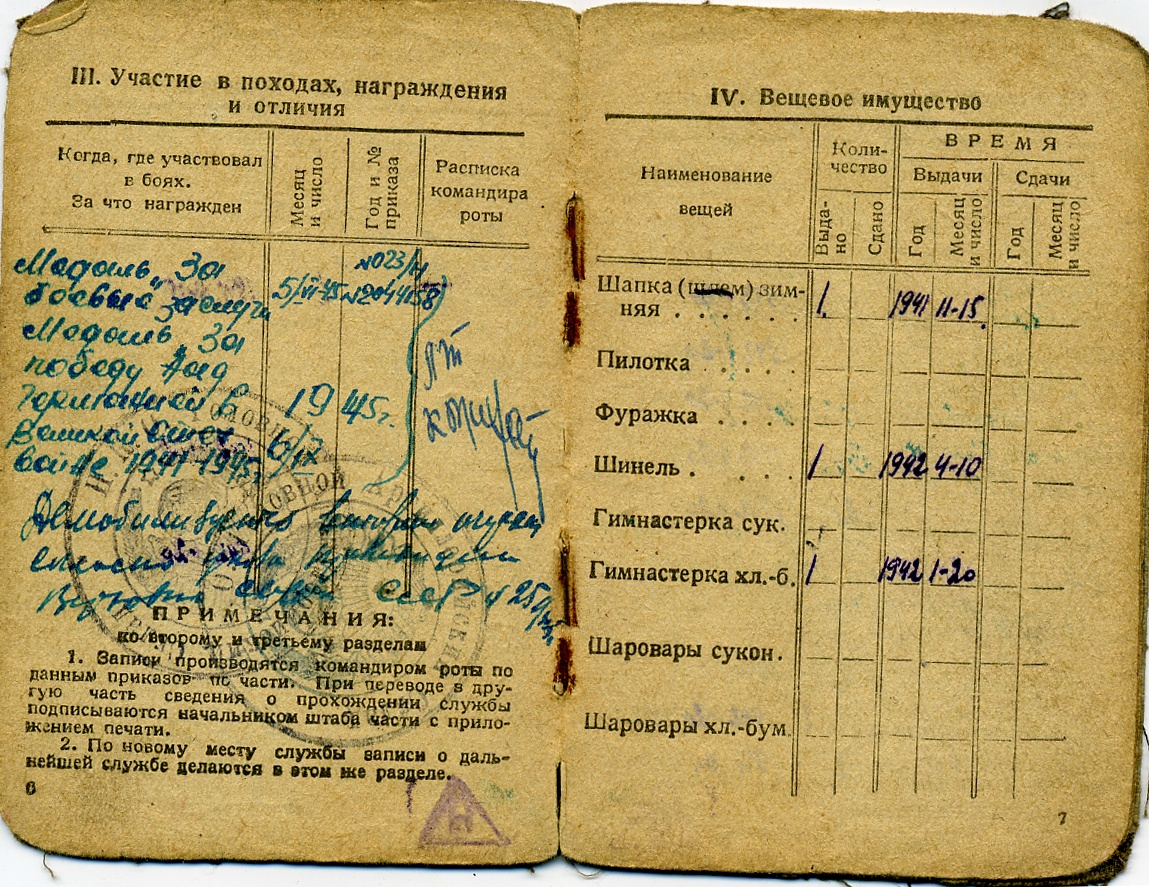 III. Участие в походах, награждения
и отличия
Когда, где участвовал
в боях.
За что награжден
Месяц
и число
Год и №
приказа
Расписка
командира
роты
Медаль „За
боевые заслуги
5/VI-45
№023/н
Медаль „За
победу над
Германией в
Великой Отеч
войне 1941 1945
1945г.
Демобилизуется
СССР
25
ПРИМЕЧАНИЯ:
ко второму и третьему разделам
1. Записи производятся командиром роты по
данным приказов по части. При переводе в дру-
гую часть сведения о прохождении службы
подписываются начальником штаба части с прило-
жением печати.
2. По новому месту службы записи о даль-
нейшей службе делаются в этом же разделе.
6
IV. Вещевое имущество
Наименование
вещей
Коли-
чество
ВРЕМЯ
Выдачи
Сдачи
Выда-
но
Сдано
Год
Месяц
и число
Год
Месяц
и число
Шапка (шлем) зим-
няя . . . . . . 1. 1941 11-15.
Пилотка . . . . .
Фуражка . . . .
Шинель . . . . . 1 1942 4-10
Гимнастерка сук.
Гимнастерка хл.-б. 1 1942 1-20
Шаровары сукон.
Шаровары хл.-бум.
7